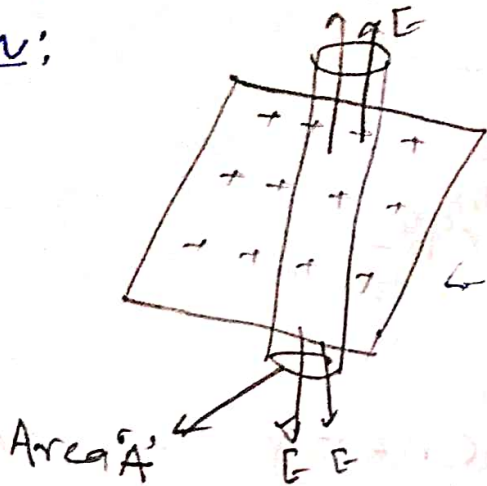 n:
E
+ + + +
+ + + +
+ + + +
Area 'A'
E E